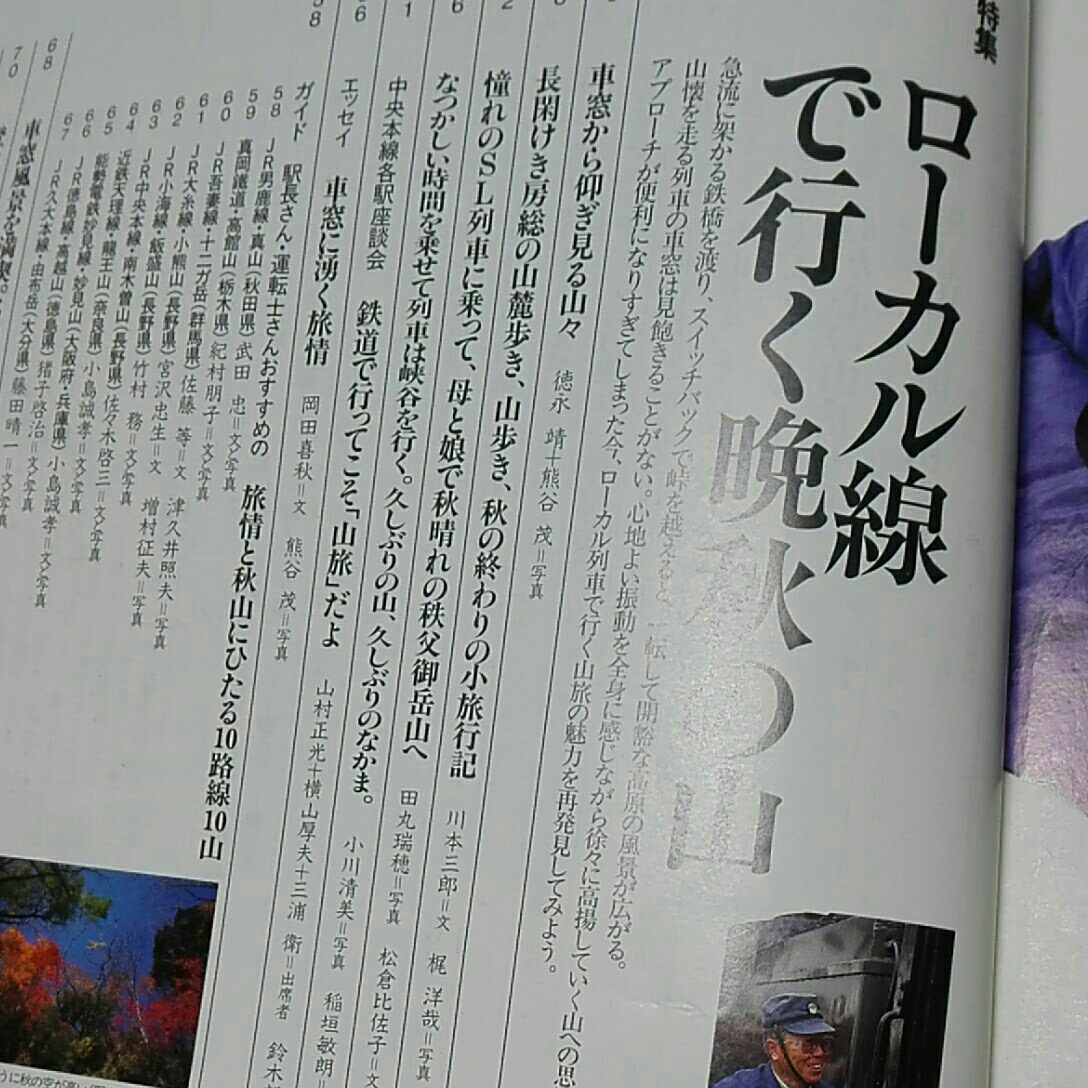 特集
ローカル線
で行く晩秋の山
急流に架かる鉄橋を渡り、スイッチバックで峠を越えると、一転して開豁な高原の風景が広がる。
山懐を走る列車の車窓は見飽きることがない。心地よい振動を全身に感じながら徐々に高揚していく山への思
アプローチが便利になりすぎてしまった今、ローカル列車で行く山旅の魅力を再発見してみよう。
車窓から仰ぎ見る山々 徳永 靖+熊谷 茂=写真
長閑けき房総の山麓歩き、山歩き、秋の終わりの小旅行記 川本三郎=文 梶 洋哉=写真
憧れのSL列車に乗って、母と娘で秋晴れの秩父御岳山へ 田丸瑞穂=写真 松倉比佐子=文
なつかしい時間を乗せて列車は峡谷を行く。久しぶりの山、久しぶりのなかま。 小川清美=写真 稲垣敏朗=
中央本線各駅座談会 鉄道で行ってこそ「山旅」だよ 山村正光+横山厚夫+三浦 衛=出席者 鈴木
エッセイ 車窓に湧く旅情 岡田喜秋=文 熊谷 茂=写真
58
ガイド 駅長さん・運転士さんおすすめの 旅情と秋山にひたる10路線10山
58 JR男鹿線・真山(秋田県)武田 忠=文/写真
59 真岡鐵道・高館山(栃木県)紀村朋子=文/写真
60 JR吾妻線・十二ガ岳(群馬県)佐藤 等=文 津久井照夫=写真
61 JR大糸線・小熊山(長野県)宮沢忠生=文 増村征夫=写真
62 JR小海線・飯盛山(長野県)竹村 務=文/写真
63 JR中央本線・南木曽山(長野県)佐々木啓三=文/写真
64 近鉄天理線・龍王山(奈良県)小島誠孝=文/写真
65 能勢電鉄妙見線・妙見山(大阪府・兵庫県)小島誠孝=文/写真
66 JR徳島線・高越山(徳島県)猪子啓治=文/写真
67 JR久大本線・由布岳(大分県)藤田晴一=文/写真
68 車窓風景を満喫。
70